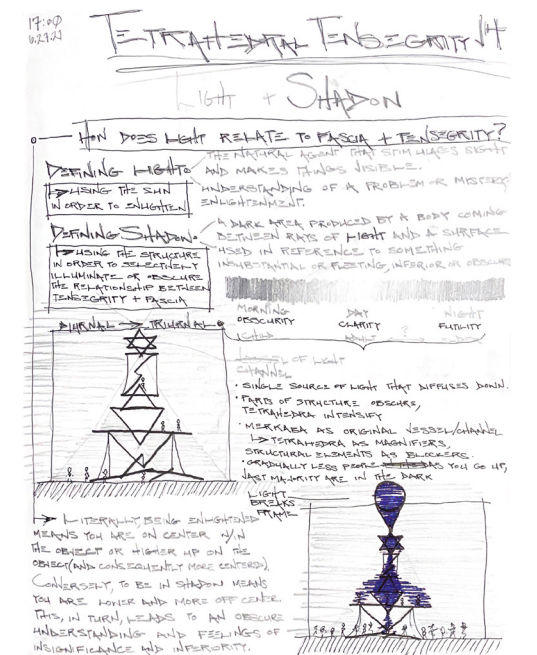 17:00
6.29.21
TETRAHEDRAL TENSEGRITY
LIGHT + SHADOW
HOW DOES LIGHT RELATE TO FASCIA + TENSEGRITY?
DEFINING LIGHT:
THE NATURAL AGENT THAT STIMULATES SIGHT
AND MAKES THINGS VISIBLE.
UNDERSTANDING OF A PROBLEM OR MYSTERY;
ENLIGHTENMENT.
USING THE SUN
IN ORDER TO ENLIGHTEN
DEFINING SHADOW:
A DARK AREA PRODUCED BY A BODY COMING
BETWEEN RAYS OF LIGHT AND A SURFACE
USED IN REFERENCE TO SOMETHING
INSUBSTANTIAL OR FLEETING, INFERIOR OR OBSCURE
USING THE STRUCTURE
IN ORDER TO SELECTIVELY
ILLUMINATE OR OBSCURE
THE RELATIONSHIP BETWEEN
TENSEGRITY + FASCIA
MORNING DAY NIGHT
OBSCURITY CLARITY ? FUTILITY
CHILD ADULT
DIURNAL → TRIURNAL
OF LIGHT
CHANNEL
• SINGLE SOURCE OF LIGHT THAT DIFFUSES DOWN.
• PARTS OF STRUCTURE OBSCURE,
TETRAHEDRA INTENSIFY
• MERKABA AS ORIGINAL VESSEL/CHANNEL
↳ TETRAHEDRA AS MAGNIFIERS,
STRUCTURAL ELEMENTS AS BLOCKERS.
• GRADUALLY LESS PEOPLE AS YOU GO UP,
VAST MAJORITY ARE IN THE DARK
LIGHT
BREAKS
FRAME
LITERALLY, BEING ENLIGHTENED
MEANS YOU ARE ON CENTER W/IN
THE OBJECT OR HIGHER UP ON THE
OBJECT (AND CONSEQUENTLY MORE CENTERED).
CONVERSELY, TO BE IN SHADOW MEANS
YOU ARE LOWER AND MORE OFF CENTER.
THIS, IN TURN, LEADS TO AN OBSCURE
UNDERSTANDING AND FEELINGS OF
INSIGNIFICANCE AND INFERIORITY.